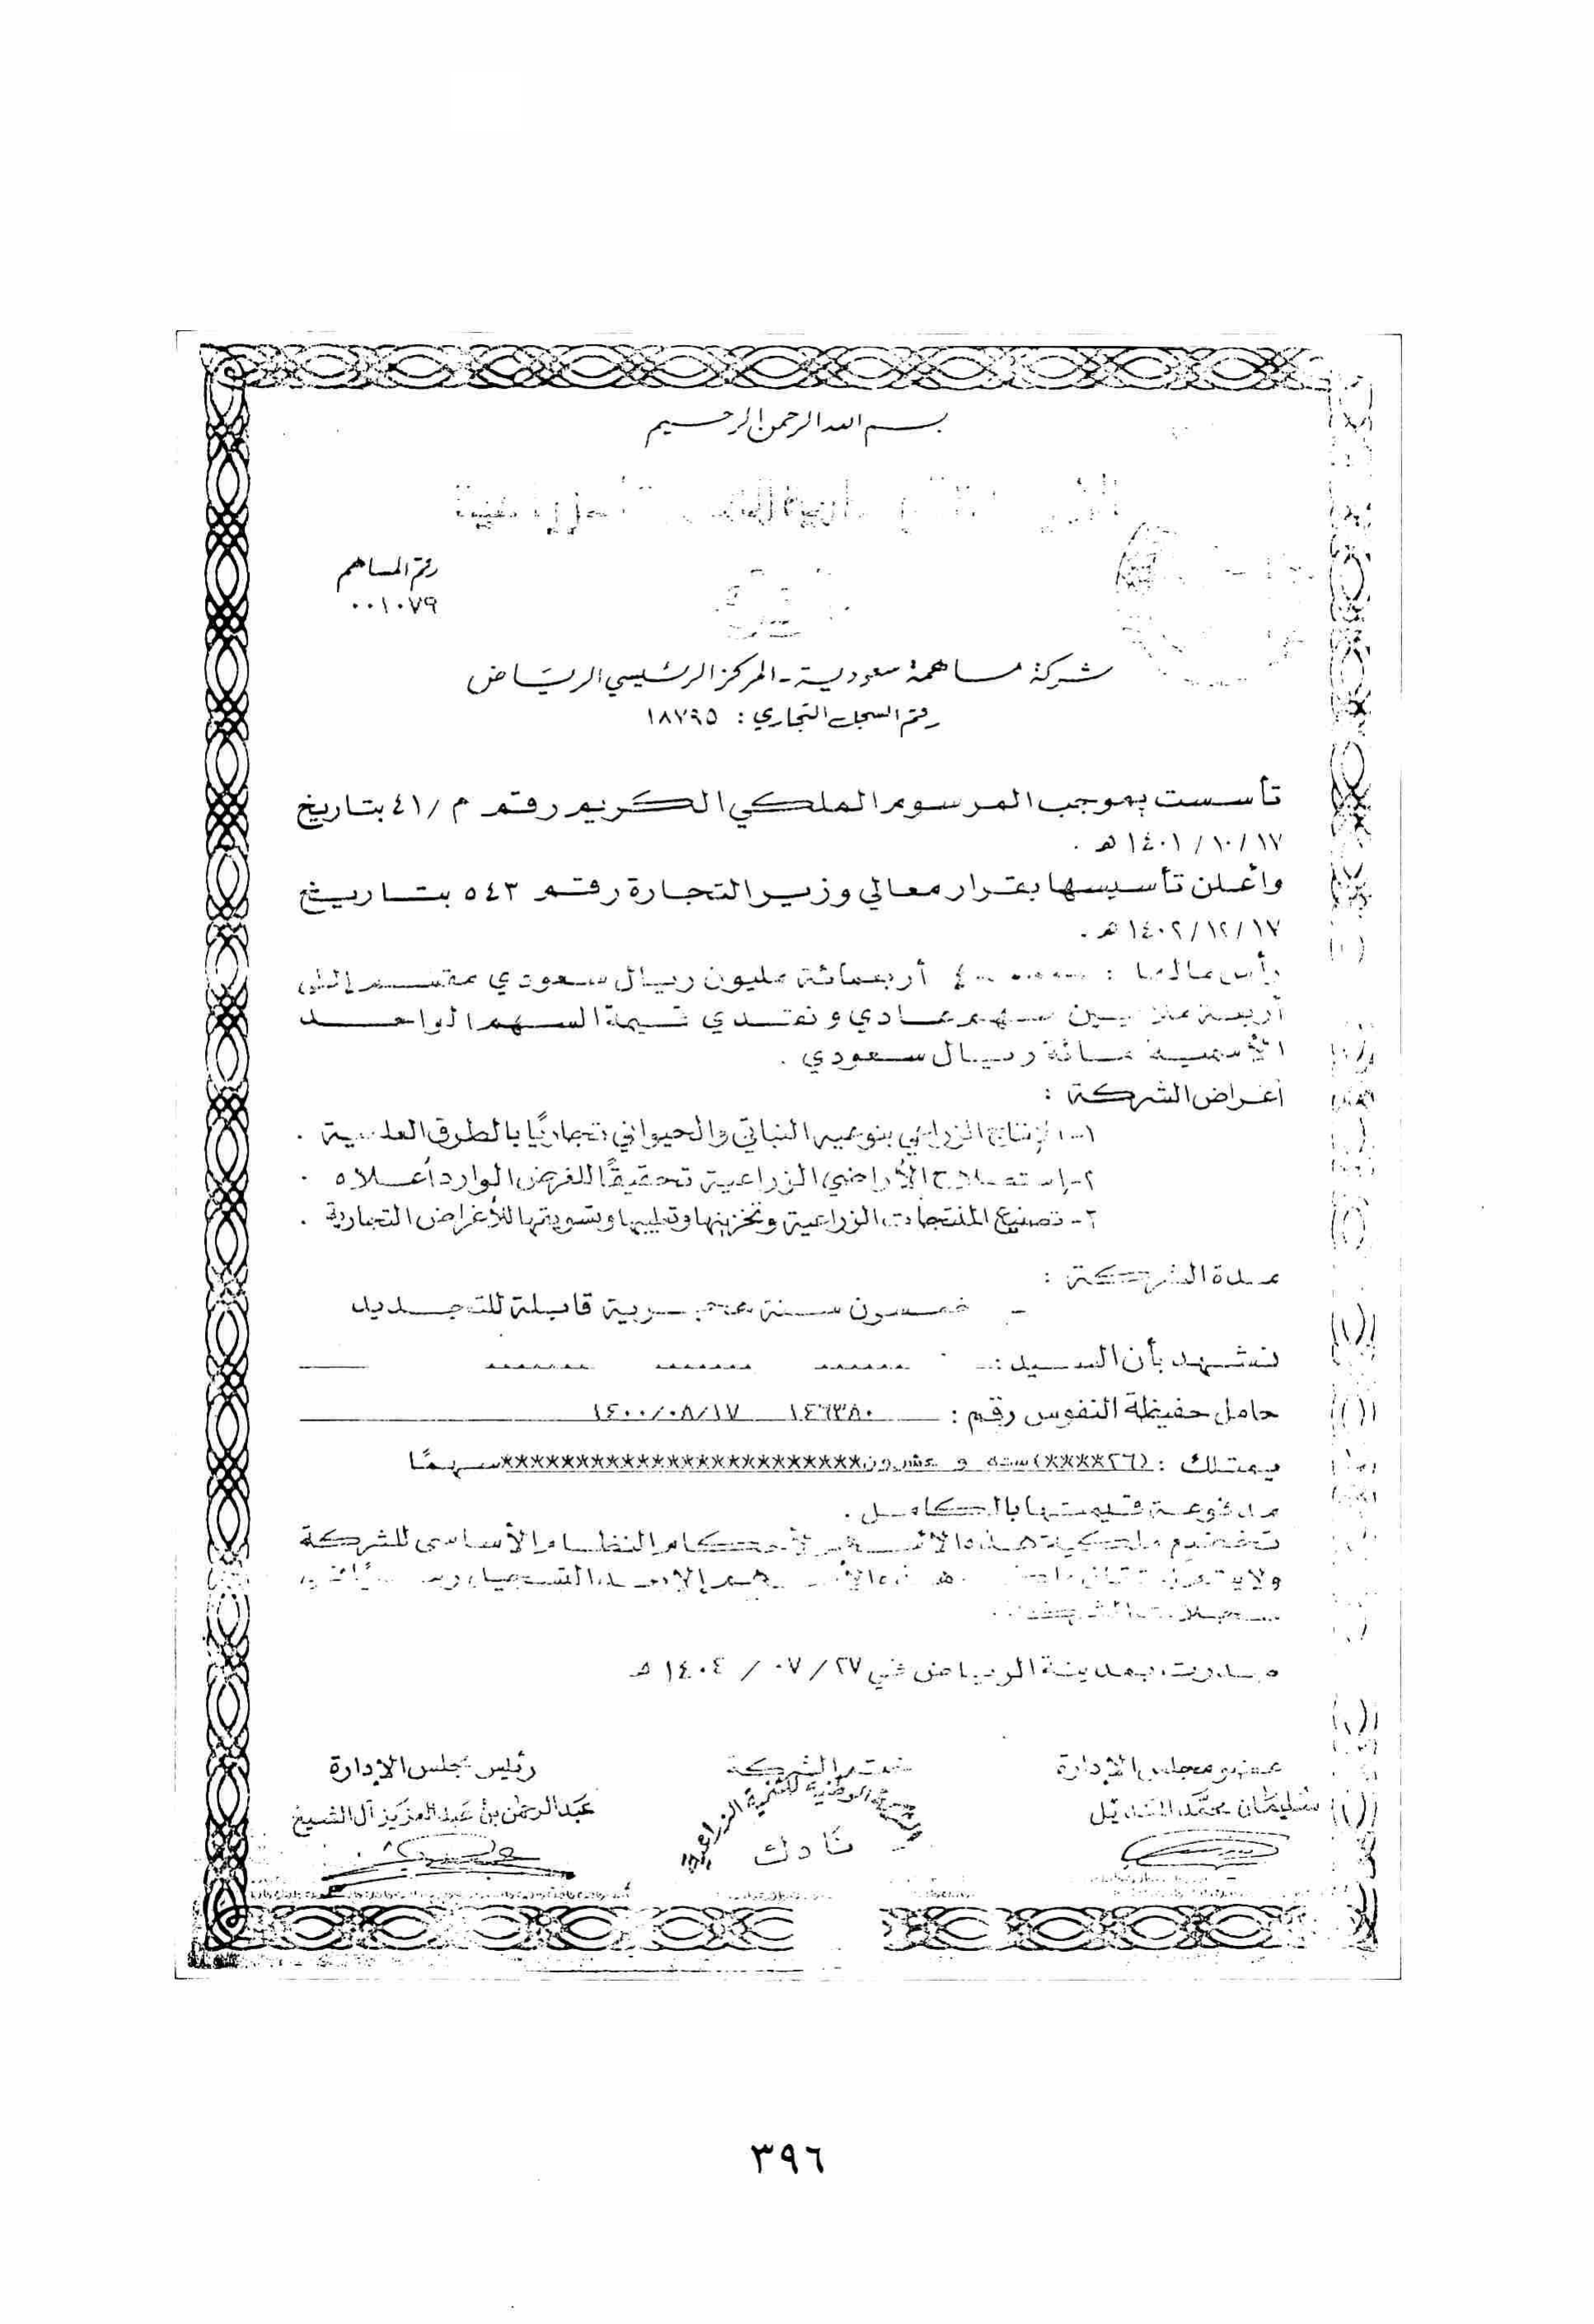 بسم الله الرحمن الرحيم
رقم المساهم
٠٠١٠٧٩
شركة مساهمة سعودية - المركز الرئيسي الرياض
رقم السجل التجاري : ١٨٧٩٥
تأسست بموجب المرسوم الملكي الكريم رقم م /٤١ بتاريخ
١٧ /١٠ / ١٤٠١ هـ .
وأعلن تأسيسها بقرار معالي وزير التجارة رقم ٥٤٣ بتاريخ
١٧ /١٢ /١٤٠٢ هـ .
رأس مالها : أربعمائة مليون ريال سعودي مقسم إلى
أربعة ملايين سهم عادي ونقدي قيمة السهم الواحد
الأسمية مائة ريال سعودي .
أغراض الشركة :
١- الإنتاج الزراعي بنوعيه النباتي والحيواني تجاريًا بالطرق العلمية .
٢- إستصلاح الأراضي الزراعية تحقيقًا للغرض الوارد أعلاه .
٣- تصنيع المنتجات الزراعية وتخزينها وتعليبها وتسويقها للأغراض التجارية .
مدة الشركة :
- خمسون سنة هجرية قابلة للتجديد
نشهد بأن السيد :
حامل حفيظة النفوس رقم : ١٤٦٣٨٠ ١٤٠٠/٠٨/١٧
يمتلك : (٢٦****) سته و عشرون************************سهمًا
مدفوعة قيمتها بالكامل .
تخضع ملكية هذه الأسهم لأحكام النظام الأساسى للشركة
ولا هذه الأسهم إلا بعد التسجيل
سجلات الشركة .
صدرت بمدينة الرياض في ٢٧ / ٠٧ / ١٤٠٤ هـ
عضو مجلس الإدارة
ختم الشركة
رئيس مجلس الإدارة
سليمان محمد
الشركة الوطنية للتنمية الزراعية
نادك
عبد الرحمن بن عبد العزيز آل الشيخ
٣٩٦